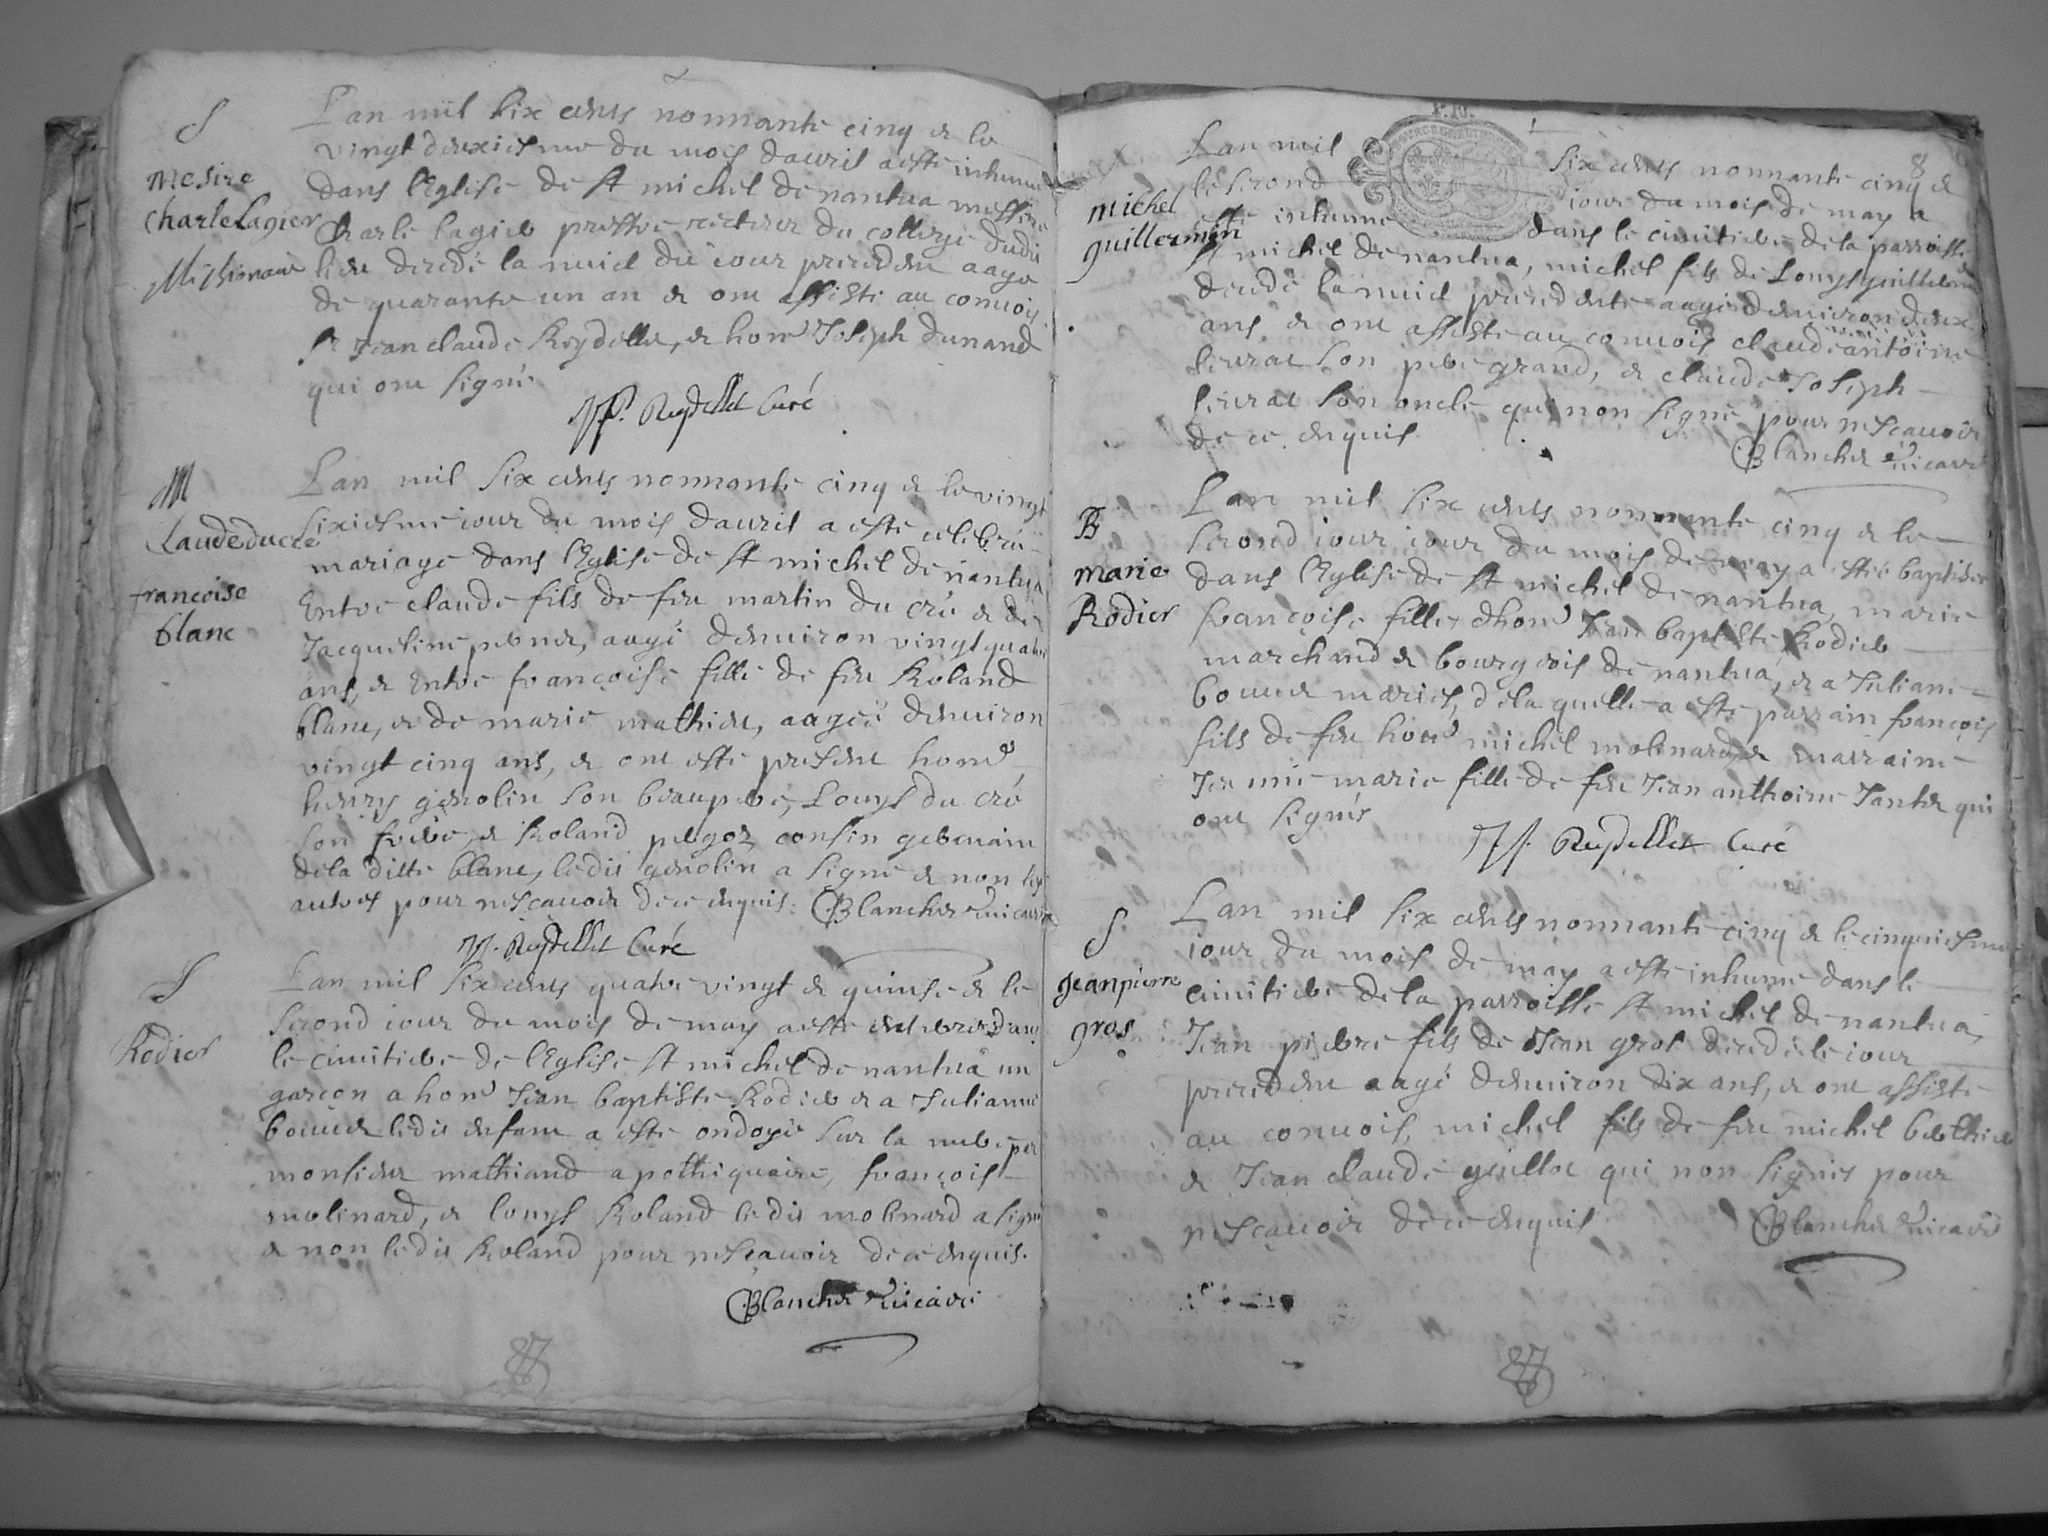 S
Mesire
Charle Lagier
Missionair
Lan mil six cents nonnante cinq & le
vingt deuxiesme du mois dauril a este inhumé
dans l'Eglise de st michel de nantua messire
Charle lagier prestre recteur du college dudit
lieu decedé la nuict du iour precedent aagé
de quarante un an & ont assisté au conuois
sr Jean claude Reydellet, & honble Joseph dunand
qui ont signé
Reydellet Curé
M
Claude ducré
francoise
blanc
Lan mil six cents nonnante cinq & le vingt
sixiesme iour du mois dauril a esté celebré
mariage dans l'Eglise de st michel de nantua
Entre claude fils de feu martin du cré & de
Jacqueline perner, aagé denuiron vingt quatre
ans, & Entre françoise fille de feu Roland
blanc, & de marie mathieu, aagée denuiron
vingt cinq ans, & ont esté present honé
henry genolin son beaupere, Louys du cré
son frere, & Roland pergoz cousin germain
de la ditte blanc, ledit genolin a signé & non les
autres pour ne scauoir de ce enquis. Blanchet vicaire
Reydellet Curé
S
Rodier
Lan mil six cents quatre vingt & quinse & le
second iour du mois de may a esté enterré dans
le cimitiere de l'Eglise st michel de nantua un
garçon a honé Jean baptiste Rodier & a Julianne
bouuer ledit enfant a esté ondoyé sur la mere par
monsieur mathiand apothiquaire, françois
molinard, & louys Roland ledit molinard a signé
& non ledit Roland pour ne scauoir de ce enquis.
Blanchet vicaire
8
michel
guillermin
Lan mil six cents nonnante cinq &
le second iour du mois de may a
esté inhumé dans le cimitiere de la parroisse
st michel de nantua, michel fils de Louys guillermin
decedé la nuict precedente aagé denuiron deux
ans & ont assisté au conuois claude antoine
leurat son pere grand, & claude Joseph
leurat son oncle qui non signé pour ne scauoir
de ce enquis
Blanchet vicaire
B
Marie
Rodier
Lan mil six cents nonnante cinq & le
second iour iour du mois de may a esté baptisée
dans l'Eglise de st michel de nantua, marie
françoise fille dhoné Jean baptiste Rodier
marchand & bourgeois de nantua, & a Juliane
bouuer mariés, de la quelle a esté parrain françois
fils de feu honé michel molinard, & marraine
Jeanne marie fille de feu Jean anthoine Jantet qui
ont signés
Reydellet Curé
S
Jean pierre
gros
Lan mil six cents nonnante cinq & le cinquiesme
iour du mois de may a esté inhumé dans le
cimitiere de la parroisse st michel de nantua,
Jean pierre fils de Jean gros decedé le iour
precedent aagé denuiron dix ans, & ont assisté
au conuois, michel fils de feu michel berthier
& Jean claude guillot qui non signés pour
ne scauoir de ce enquis
Blanchet vicaire